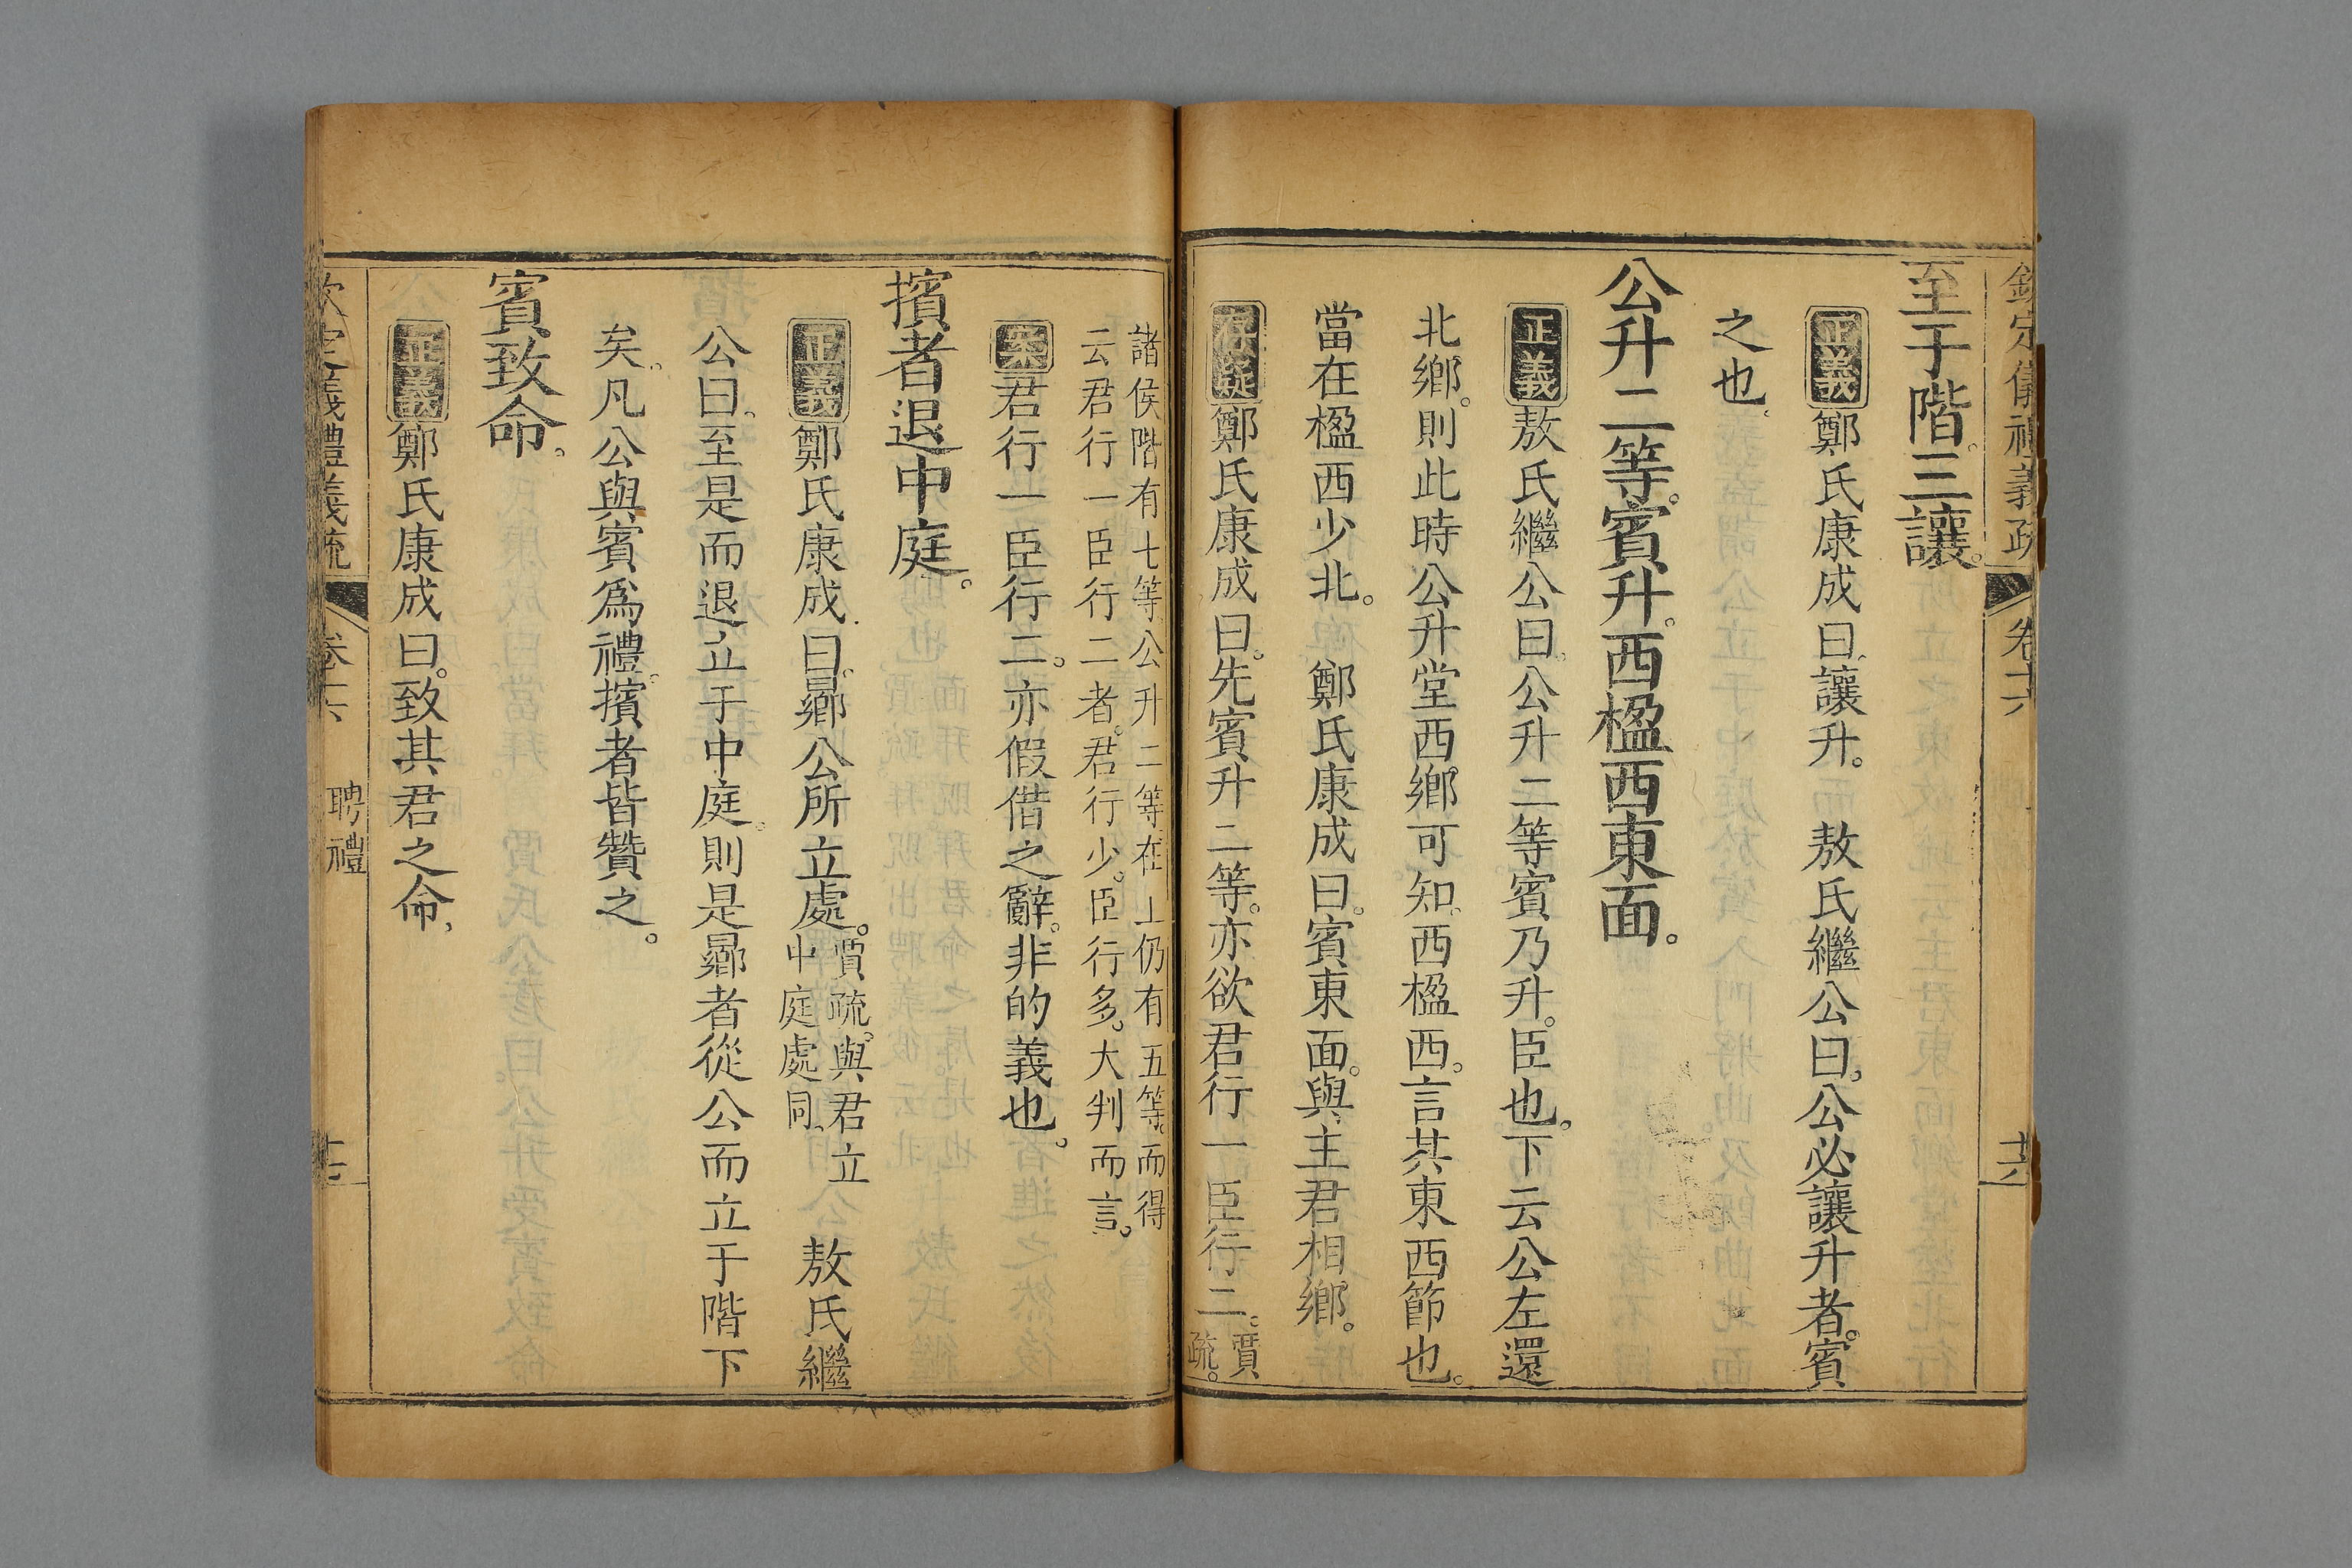 欽定儀禮義疏 卷十六
至于階。三讓。
正義鄭氏康成曰。讓升。 敖氏繼公曰。公必讓升者。賓
之也。
公升二等。賓升。西楹西東面。
正義敖氏繼公曰。公升二等賓乃升。臣也。下云公左還
北鄉。則此時公升堂西鄉可知。西楹西。言其東西節也。
當在楹西少北。 鄭氏康成曰。賓東面。與主君相鄉。
存疑鄭氏康成曰。先賓升二等。亦欲君行一臣行二。賈
疏。
諸侯階有七等公升二等在上仍有五等。而得
云君行一臣行二者。君行少。臣行多。大判而言。
案君行一臣行二。亦假借之辭。非的義也。
擯者退中庭。
正義鄭氏康成曰。鄉公所立處。賈疏。與君立
中庭處同。 敖氏繼
公曰。至是而退立于中庭。則是鄉者從公而立于階下
矣。凡公與賓爲禮。擯者皆贊之。
賓致命。
正義鄭氏康成曰。致其君之命。
欽定義禮義疏 聘禮